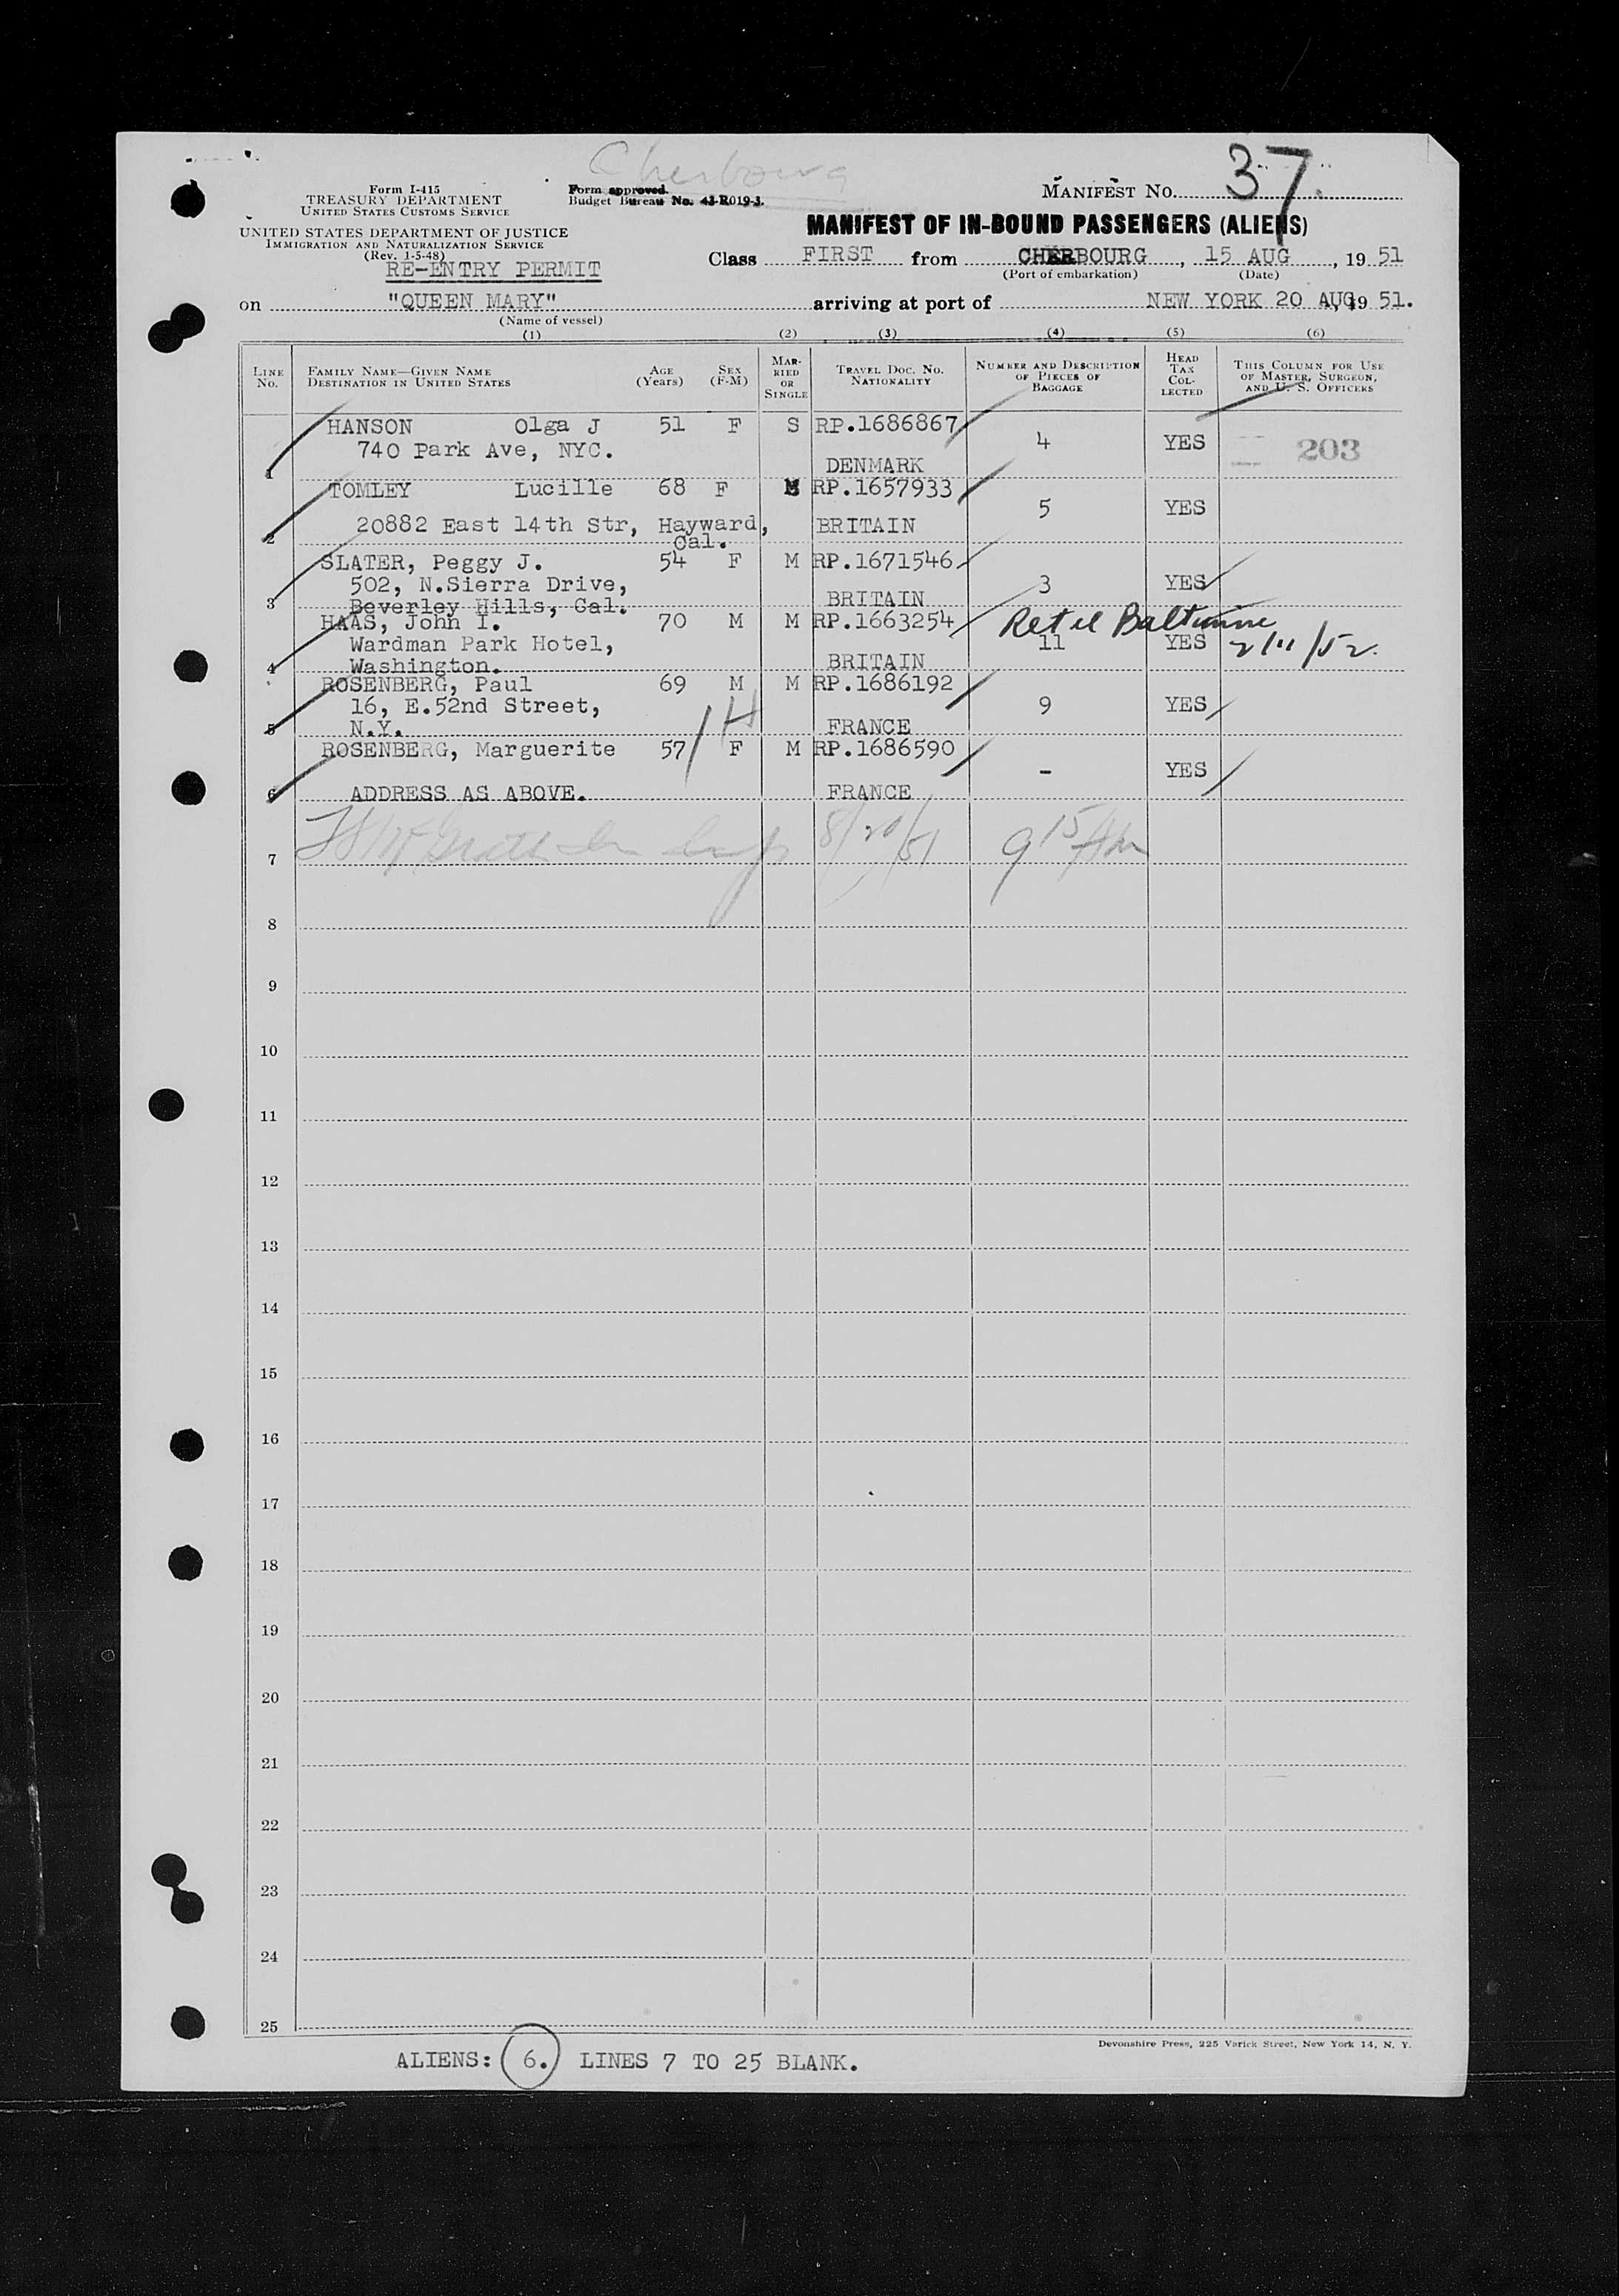 Cherbourg
37.
Form I-415
TREASURY DEPARTMENT
UNITED STATES CUSTOMS SERVICE
UNITED STATES DEPARTMENT OF JUSTICE
IMMIGRATION AND NATURALIZATION SERVICE
(Rev. 1-5-48)
RE-ENTRY PERMIT
Form approved.
Budget Bureau No. 43-R019-3.
MANIFEST NO.
MANIFEST OF IN-BOUND PASSENGERS (ALIENS)
Class FIRST from CHERBOURG, 15 AUG, 19 51
(Port of embarkation) (Date)
on "QUEEN MARY" arriving at port of NEW YORK 20 AUG, 19 51.
(Name of vessel)
(1) (2) (3) (4) (5) (6)
LINE No.
FAMILY NAME—GIVEN NAME
DESTINATION IN UNITED STATES
AGE (Years)
SEX (F-M)
MARRIED OR SINGLE
TRAVEL DOC. NO. NATIONALITY
NUMBER AND DESCRIPTION OF PIECES OF BAGGAGE
HEAD TAX COLLECTED
THIS COLUMN FOR USE OF MASTER, SURGEON, AND U. S. OFFICERS
HANSON Olga J 51 F S RP.1686867
740 Park Ave, NYC. 4 YES 203
1 DENMARK
TOMLEY Lucille 68 F M RP.1657933
5 YES
2 20882 East 14th Str, Hayward, BRITAIN
Cal.
SLATER, Peggy J. 54 F M RP.1671546
502, N.Sierra Drive, 3 YES
3 Beverley Hills, Cal. BRITAIN
HAAS, John I. 70 M M RP.1663254 Baltimore
Wardman Park Hotel, 11 YES 2/11/52.
4 Washington. BRITAIN
ROSENBERG, Paul 69 M M RP.1686192
16, E.52nd Street, 9 YES
5 N.Y. FRANCE
ROSENBERG, Marguerite 57 F M RP.1686590
- YES
6 ADDRESS AS ABOVE. FRANCE
8/20/51 9 15 AM
7
8
9
10
11
12
13
14
15
16
17
18
19
20
21
22
23
24
25
Devonshire Press, 225 Varick Street, New York 14, N. Y.
ALIENS: 6. LINES 7 TO 25 BLANK.